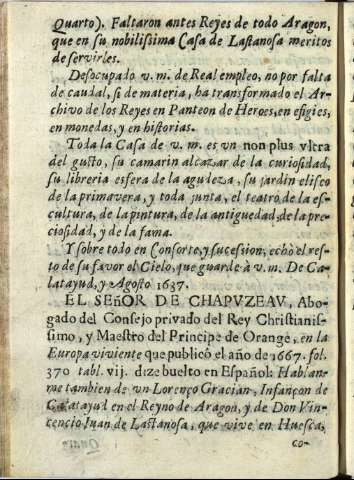 Quarto). Faltaron antes Reyes de todo Aragon,
que en su nobilissima Casa de Lastanosa meritos
de servirles.
Desocupado v. m. de Real empleo, no por falta
de caudal, si de materia, ha transformado el Ar-
chivo de los Reyes en Panteon de Heroes, en efigies,
en monedas, y en historias.
Toda la Casa de v. m. es vn non plus vltra
del gusto, su camarin alcazar de la curiosidad,
su libreria esfera de la agudeza, su jardin eliseo
de la primavera, y toda junta, el teatro de la es-
cultura, de la pintura, de la antiguedad, de la pre-
ciosidad, y de la fama.
Y sobre todo en Consorte, y sucession, echò el res-
to de su favor el Cielo, que guarde à v. m. De Ca-
latayud, y Agosto 1637.
EL SEñOR DE CHAPVZEAV, Abo-
gado del Consejo privado del Rey Christianis-
simo, y Maestro del Principe de Orange, en la
Europa viviente que publicò el año de 1667. fol.
370 tabl. vij. dize buelto en Español: Hablan-
me tambien de vn Lorenço Gracian, Infançon de
Calatayud en el Reyno de Aragon, y de Don Vin-
cencio Iuan de Lastanosa, que vive en Huesca,
co-